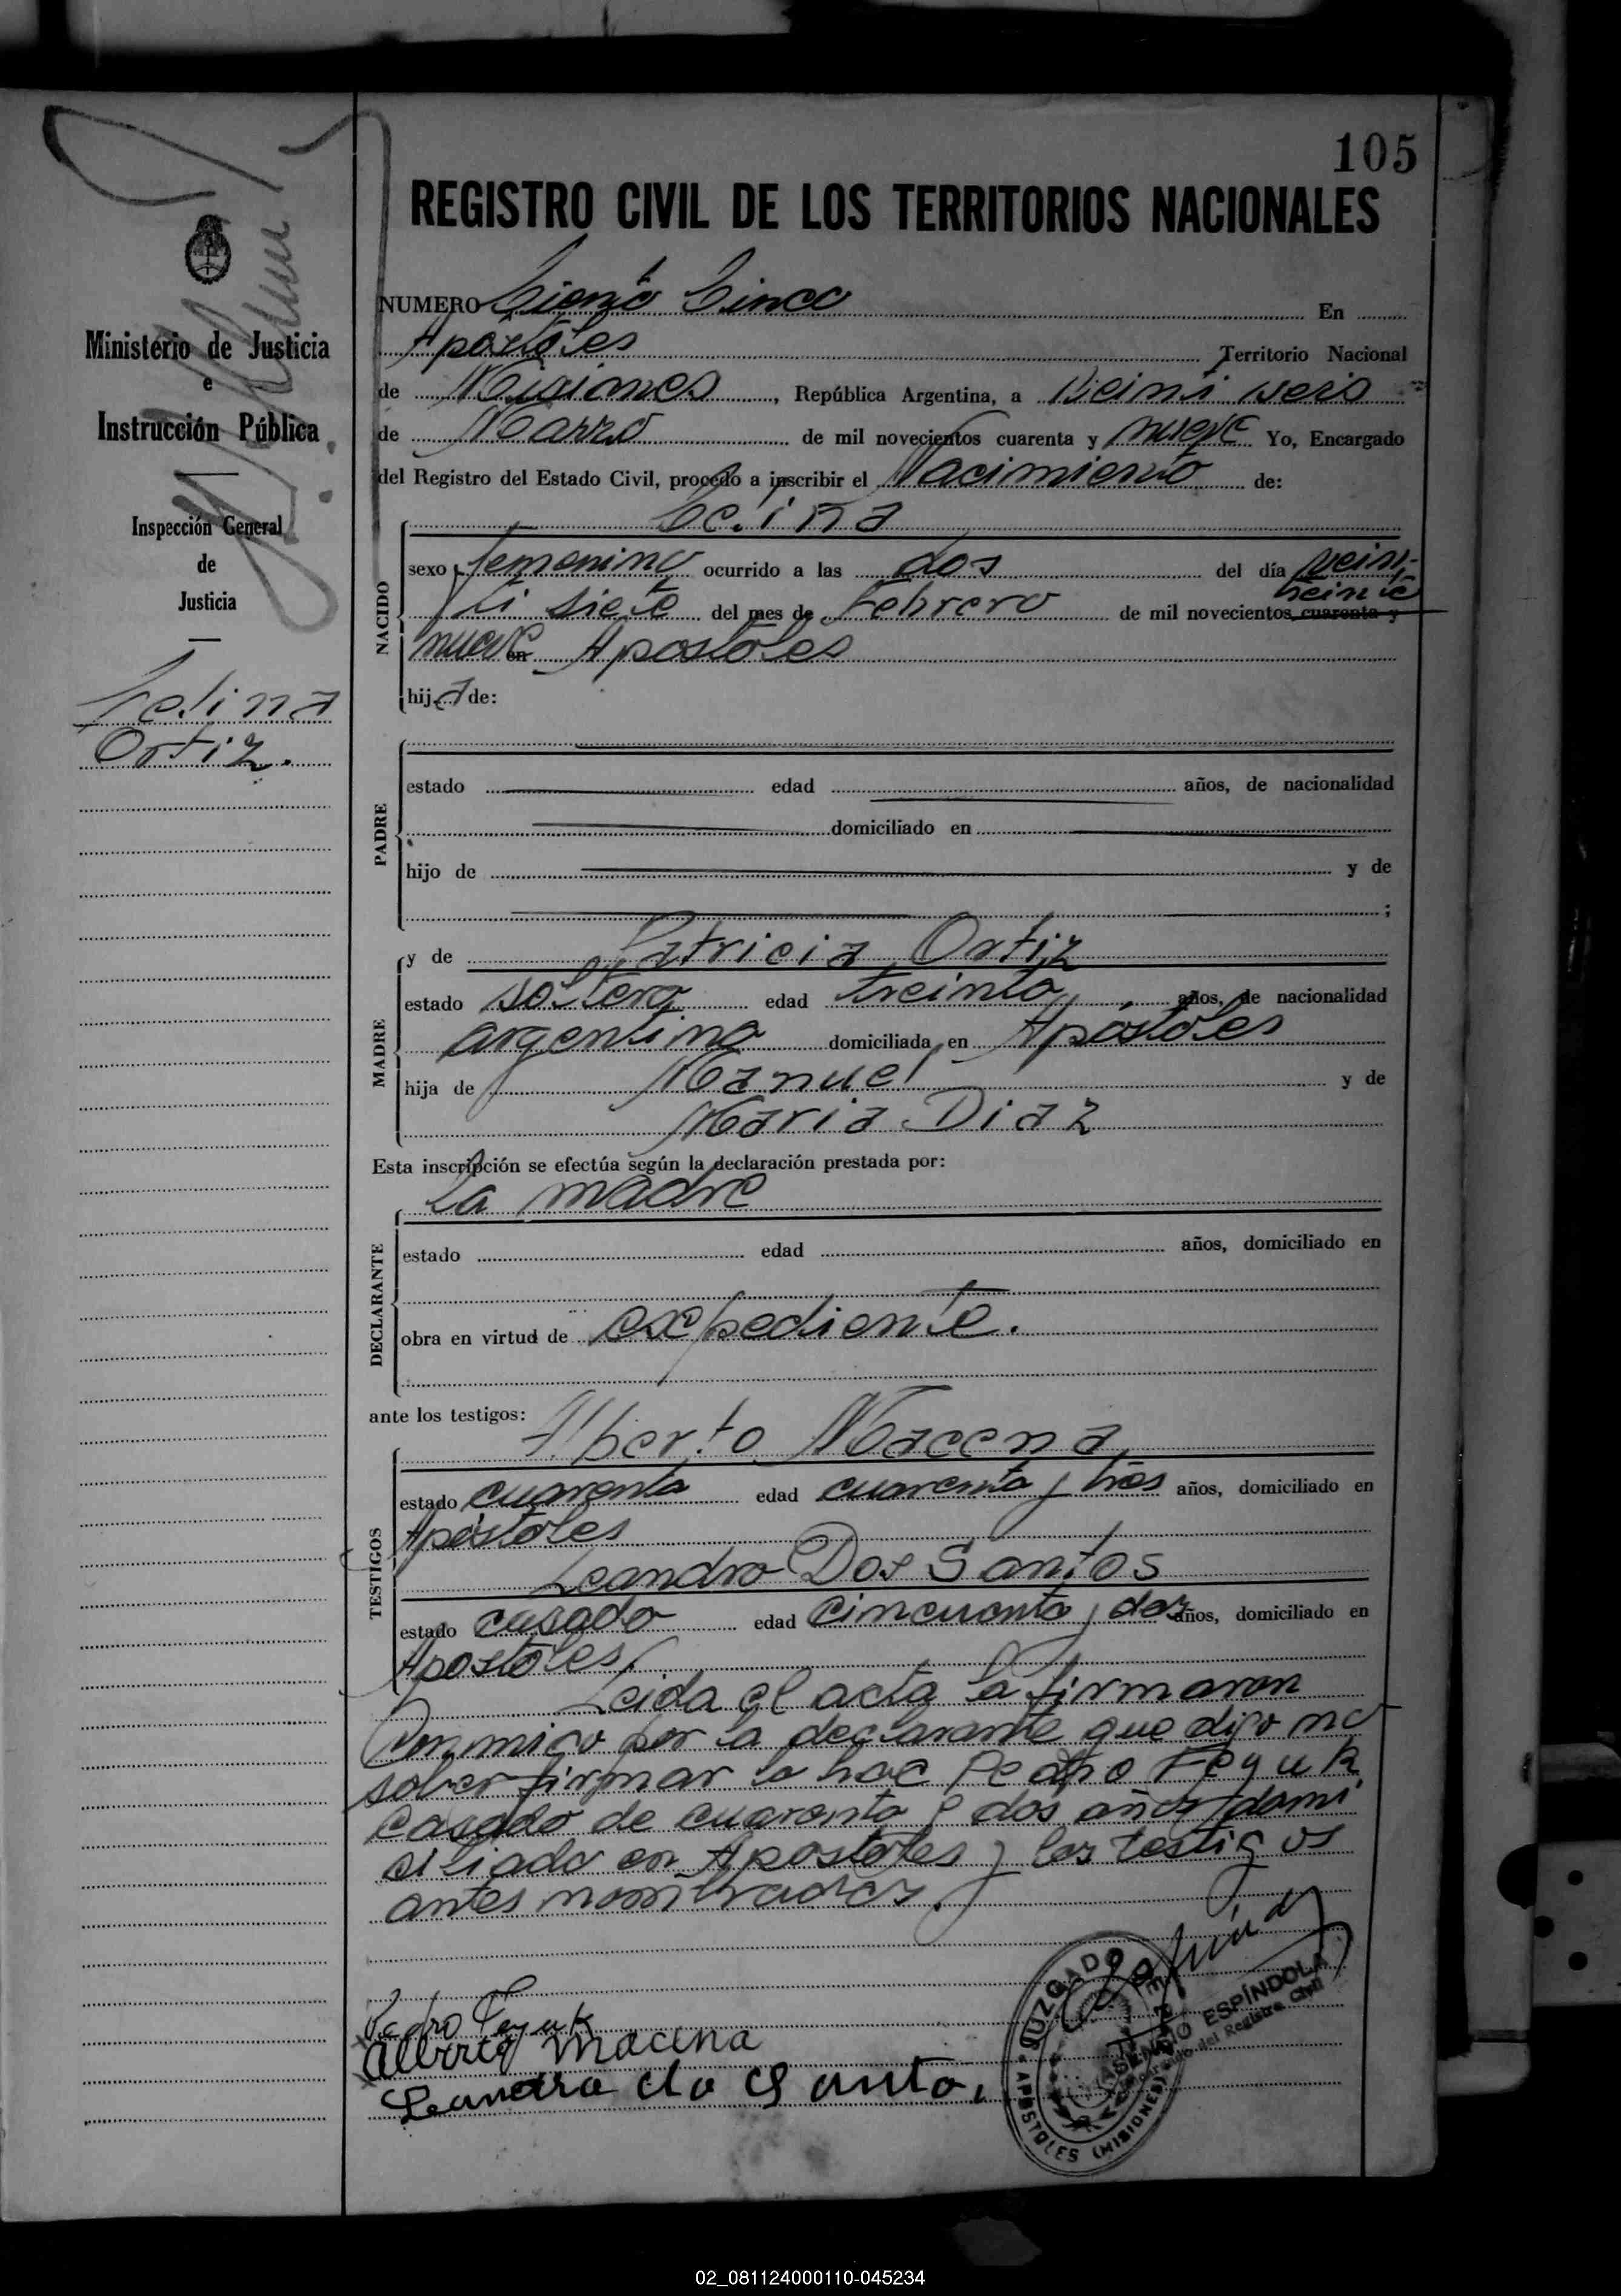 105
REGISTRO CIVIL DE LOS TERRITORIOS NACIONALES
Ministerio de Justicia
e
Instrucción Pública
Inspección General
de
Justicia
Celina
Ortiz.
NUMERO Ciento Cinco En
Apóstoles Territorio Nacional
de Misiones, República Argentina, a Veinti seis
de Marzo de mil novecientos cuarenta y nueve Yo, Encargado
del Registro del Estado Civil, procedo a inscribir el Nacimiento de:
NACIDO
Celina
sexo femenino ocurrido a las dos del día vein-
ti siete del mes de Febrero de mil novecientos cuarenta y treinta
nueve en Apostoles
hija de:
PADRE
estado edad años, de nacionalidad
domiciliado en
hijo de y de
;
MADRE
y de Patricia Ortiz
estado soltera edad treinta años, de nacionalidad
argentina domiciliada en Apóstoles
hija de Manuel y de
Maria Diaz
Esta inscripción se efectúa según la declaración prestada por:
DECLARANTE
La madre
estado edad años, domiciliado en
obra en virtud de expediente.
ante los testigos:
TESTIGOS
Alberto Macena
estado cuarenta edad cuarenta y tres años, domiciliado en
Apóstoles
Leandro Dos Santos
estado casado edad cincuenta y dos años, domiciliado en
Apostoles
Leida el acta la firmaron
conmigo por la declarante que dijo no
saber firmar lo hace Pedro
casado de cuarenta y dos años domi
ciliado en Apostoles y los testigos
antes nombrados.
Pedro
Alberto Macena
Leandro do Santo
JUZGADO DE PAZ
APOSTOLES (MISIONES)
ASENCIO ESPÍNDOLA
Encargado del Registro Civil
02_081124000110-045234